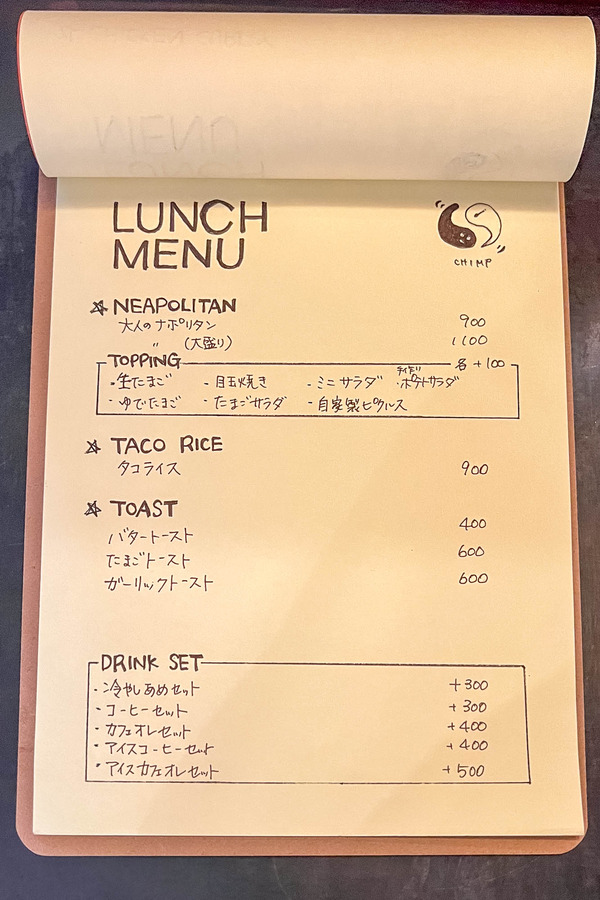 LUNCH
MENU
CHIMP
☆ NEAPOLITAN
大人のナポリタン 900
〃 (大盛り) 1100
TOPPING 各+100
・生たまご ・目玉焼き ・ミニサラダ ・ポテトサラダ
・ゆでたまご ・たまごサラダ ・自家製ピクルス
☆ TACO RICE
タコライス 900
☆ TOAST
バタートースト 400
たまごトースト 600
ガーリックトースト 600
DRINK SET
・冷やしあめセット +300
・コーヒーセット +300
・カフェオレセット +400
・アイスコーヒーセット +400
・アイスカフェオレセット +500